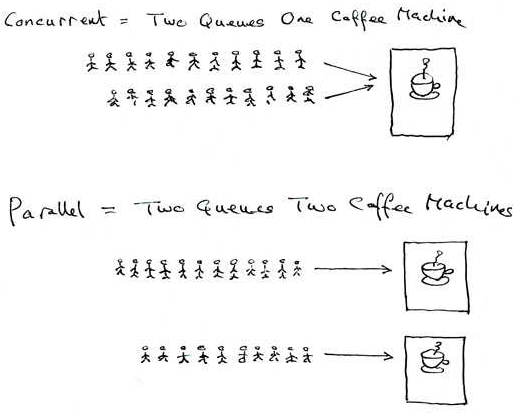 Concurrent = Two Queues One Coffee Machine
Parallel = Two Queues Two Coffee Machines